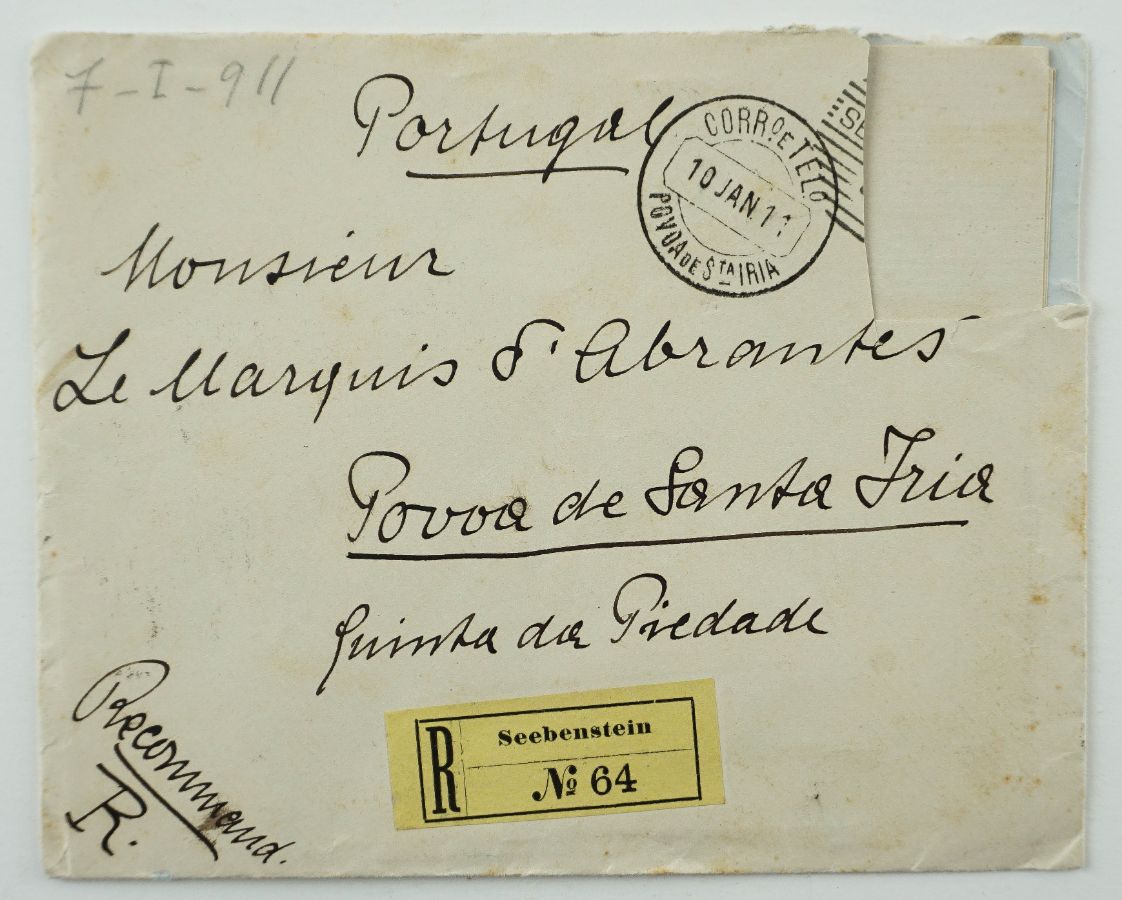 7-I-911
Portugal
CORRO. E TELO.
10 JAN. 11
POVOA DE STA IRIA
Monsieur
Le Marquis d'Abrantes
Povoa de Santa Iria
Quinta da Piedade
Recommand.
R.
R
Seebenstein
№ 64